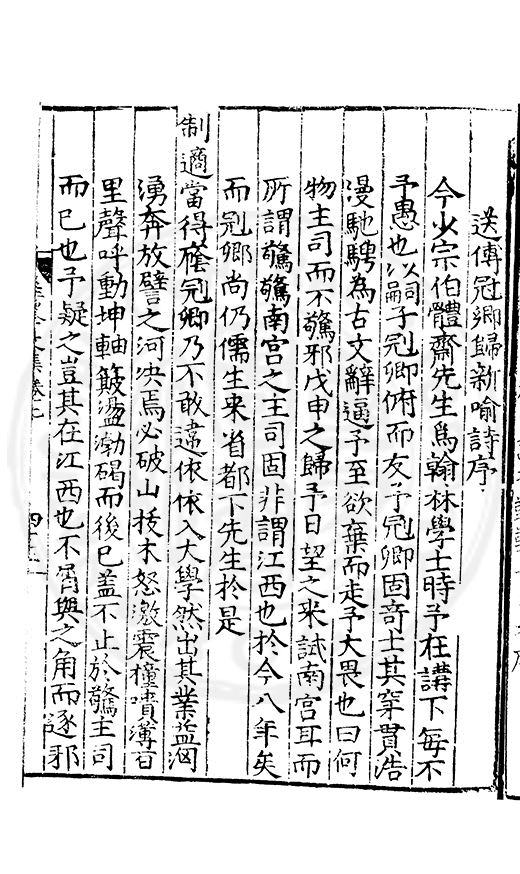 送傅冠卿歸新喻詩序
今少宗伯體齋先生為翰林學士時予在講下每不
予愚也以嗣子冠卿俯而友予冠卿固奇士其穿貫浩
漫馳騁為古文辭逼予至欲棄而走予大畏也曰何
物主司而不驚邪戊申之歸予日望之來試南宮耳而
所謂驚驚南宮之主司固非謂江西也於今八年矣
而冠卿尚仍儒生來省都下先生於是
制適當得廕冠卿乃不敢違依依入大學然出其業益洶
湧奔放譬之河决焉必破山拔木怒激震撞噴薄百
里聲呼動坤軸簸盪渤碣而後已蓋不止於驚主司
而已也予疑之豈其在江西也不屑與之角而逐邪
文集卷七